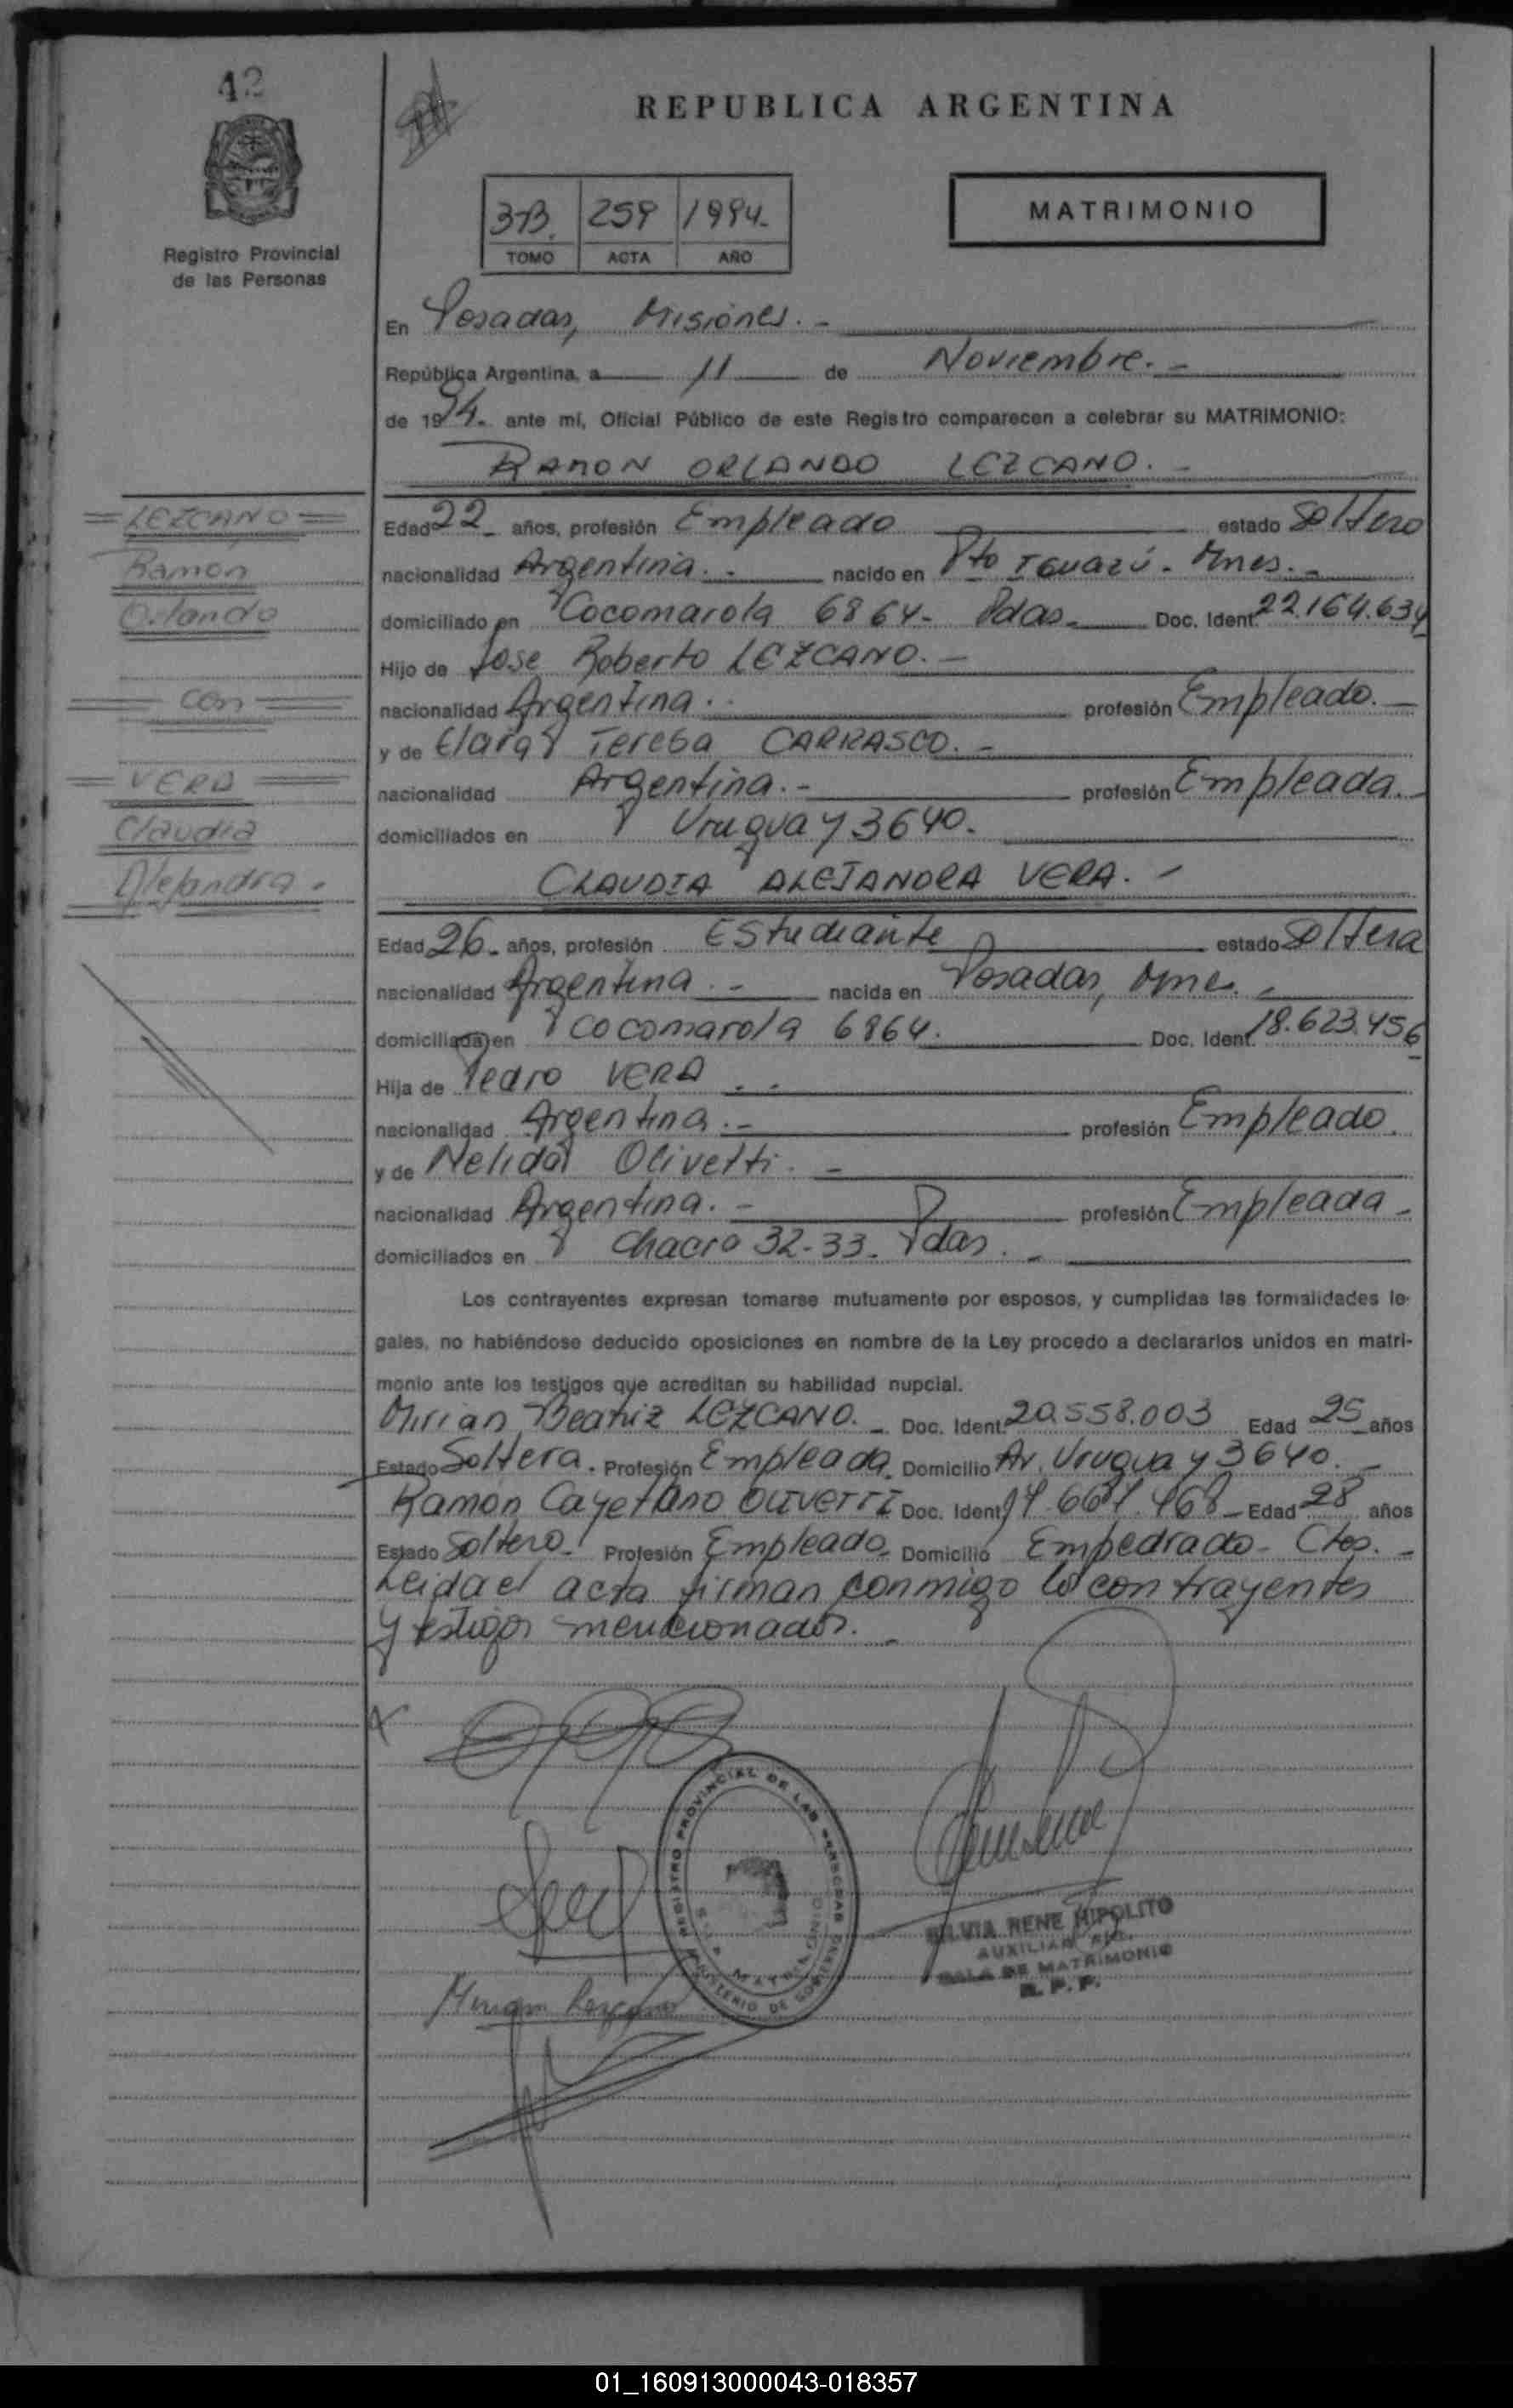 42
REPUBLICA ARGENTINA
Registro Provincial
de las Personas
3B. 259 1994.-
TOMO ACTA AÑO
MATRIMONIO
En Posadas, Misiones. -
República Argentina, a 11 de Noviembre. -
de 1994.- ante mí, Oficial Público de este Registro comparecen a celebrar su MATRIMONIO:
RAMON ORLANDO LEZCANO. -
LEZCANO
Ramon
Orlando
con
VERA
Claudia
Alejandra.
Edad 22 - años, profesión Empleado estado Soltero
nacionalidad Argentina. - nacido en Pto Iguazú - Mnes. -
domiciliado en Cocomarola 6864 - Pdas - Doc. Ident. 22.164.634
Hijo de Jose Roberto LEZCANO. -
nacionalidad Argentina. - profesión Empleado. -
y de Clara Teresa CARRASCO. -
nacionalidad Argentina. - profesión Empleada. -
domiciliados en Uruguay 3640.
CLAUDIA ALEJANDRA VERA. -
Edad 26 - años, profesión Estudiante estado Soltera
nacionalidad Argentina. - nacida en Posadas, Mnes. -
domiciliada en Cocomarola 6864. Doc. Ident. 18.623.456
Hija de Pedro VERA. -
nacionalidad Argentina. - profesión Empleado.
y de Nelida Olivetti. -
nacionalidad Argentina. - profesión Empleada -
domiciliados en Chacra 32-33. Pdas. -
Los contrayentes expresan tomarse mutuamente por esposos, y cumplidas las formalidades le-
gales, no habiéndose deducido oposiciones en nombre de la Ley procedo a declararlos unidos en matri-
monio ante los testigos que acreditan su habilidad nupcial.
Mirian Beatriz LEZCANO. - Doc. Ident. 20.558.003 Edad 25 años
Estado Soltera. Profesión Empleada. Domicilio Av. Uruguay 3640. -
Ramon Cayetano OLIVETTI Doc. Ident. Edad 28 años
Estado Soltero. Profesión Empleado - Domicilio Empedrado - Ctes. -
Leida el acta firman conmigo los contrayentes
y testigos mencionados. -
REGISTRO PROVINCIAL DE LAS PERSONAS
MINISTERIO DE GOBIERNO
SILVIA RENE HIPOLITO
AUXILIAR
SALA DE MATRIMONIO
R. P. P.
Miriam Lezcano
01_160913000043-018357